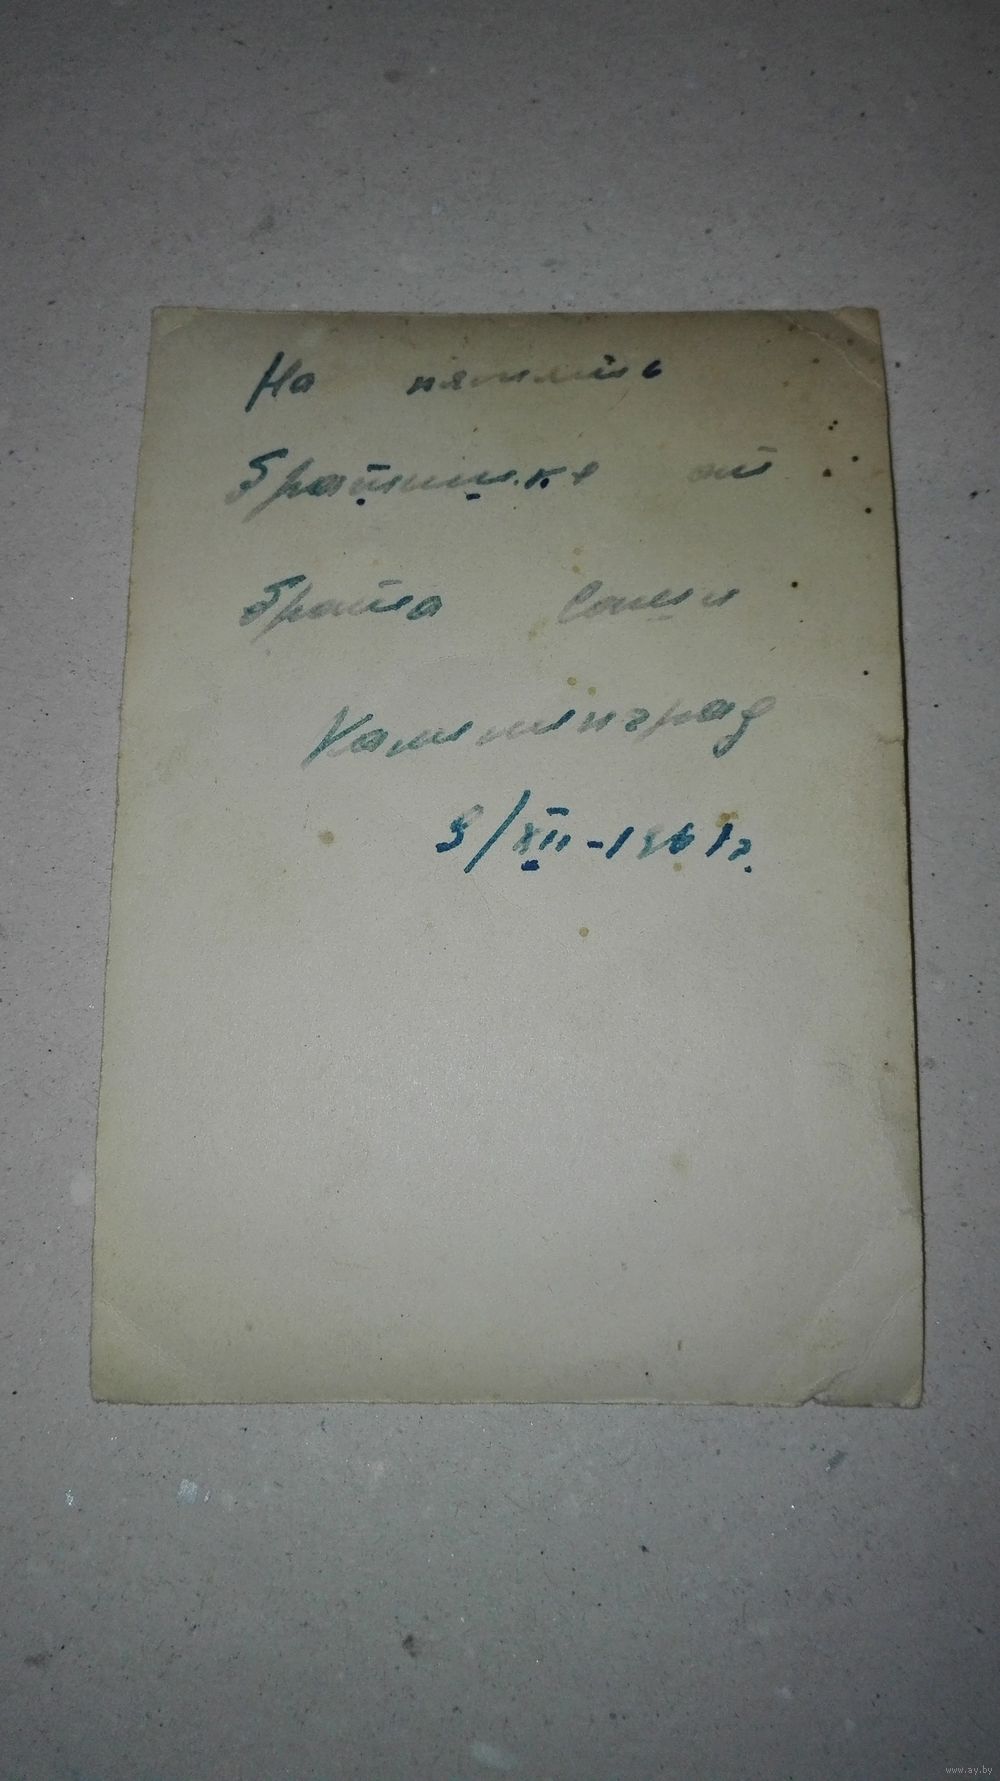 На память
братишке от
брата Саши
Калининград
9/XII-1961г.
www.ay.by